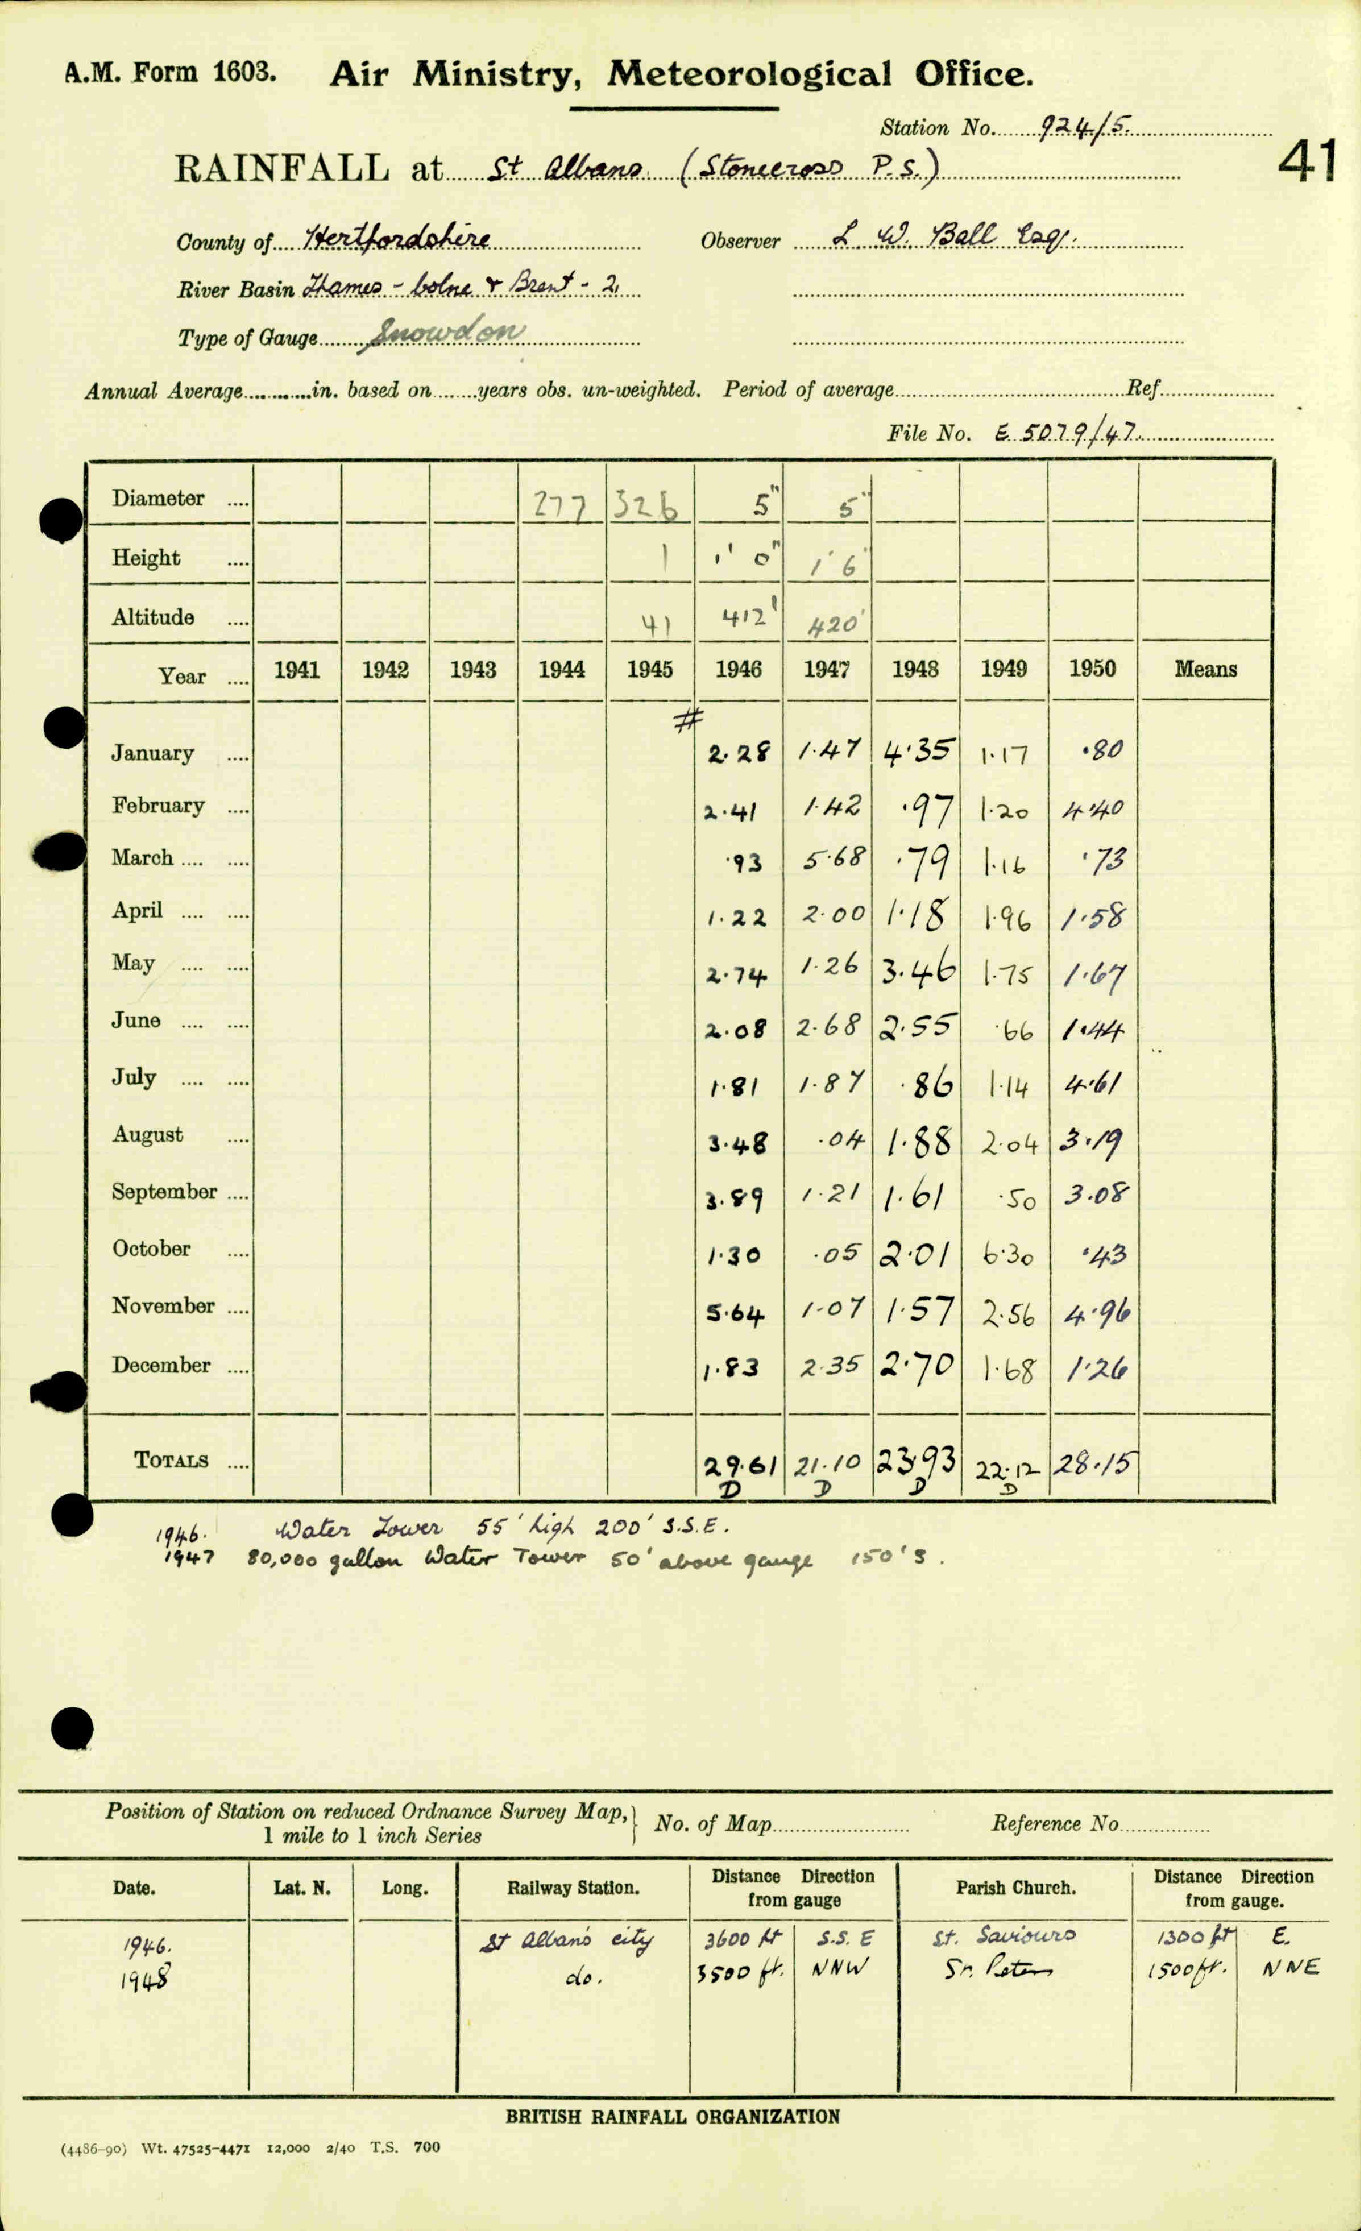 A.M. Form 1603. Air Ministry, Meteorological Office.
Station No. 924/5.
41
RAINFALL at St Albans (Stonecross P.S.)
County of Hertfordshire Observer L W. Ball Esq.
River Basin Thames - Colne & Brent - 2.
Type of Gauge Snowdon
Annual Average in. based on years obs. un-weighted. Period of average Ref.
File No. E 5079/47.
Diameter 277 326 5" 5"
Height 1 1' 0" 1' 6"
Altitude 41 412' 420'
Year 1941 1942 1943 1944 1945 1946 1947 1948 1949 1950 Means
#
January 2.28 1.47 4.35 1.17 .80
February 2.41 1.42 .97 1.20 4.40
March .93 5.68 .79 1.16 .73
April 1.22 2.00 1.18 1.96 1.58
May 2.74 1.26 3.46 1.75 1.67
June 2.08 2.68 2.55 .66 1.44
July 1.81 1.87 .86 1.14 4.61
August 3.48 .04 1.88 2.04 3.19
September 3.89 1.21 1.61 .50 3.08
October 1.30 .05 2.01 6.30 .43
November 5.64 1.07 1.57 2.56 4.96
December 1.83 2.35 2.70 1.68 1.26
TOTALS 29.61 21.10 23.93 22.12 28.15
D D D D
1946. Water Tower 55' high 200' S.S.E.
1947 80,000 gallon Water Tower 50' above gauge 150' S.
Position of Station on reduced Ordnance Survey Map, } No. of Map Reference No
1 mile to 1 inch Series
Date. Lat. N. Long. Railway Station. Distance Direction from gauge Parish Church. Distance Direction from gauge.
1946. St Albans city 3600 ft S.S.E St. Saviours 1300 ft E.
1948 do. 3500 ft. NNW St. Peters 1500 ft. NNE
BRITISH RAINFALL ORGANIZATION
(4486-90) Wt. 47525-4471 12,000 2/40 T.S. 700